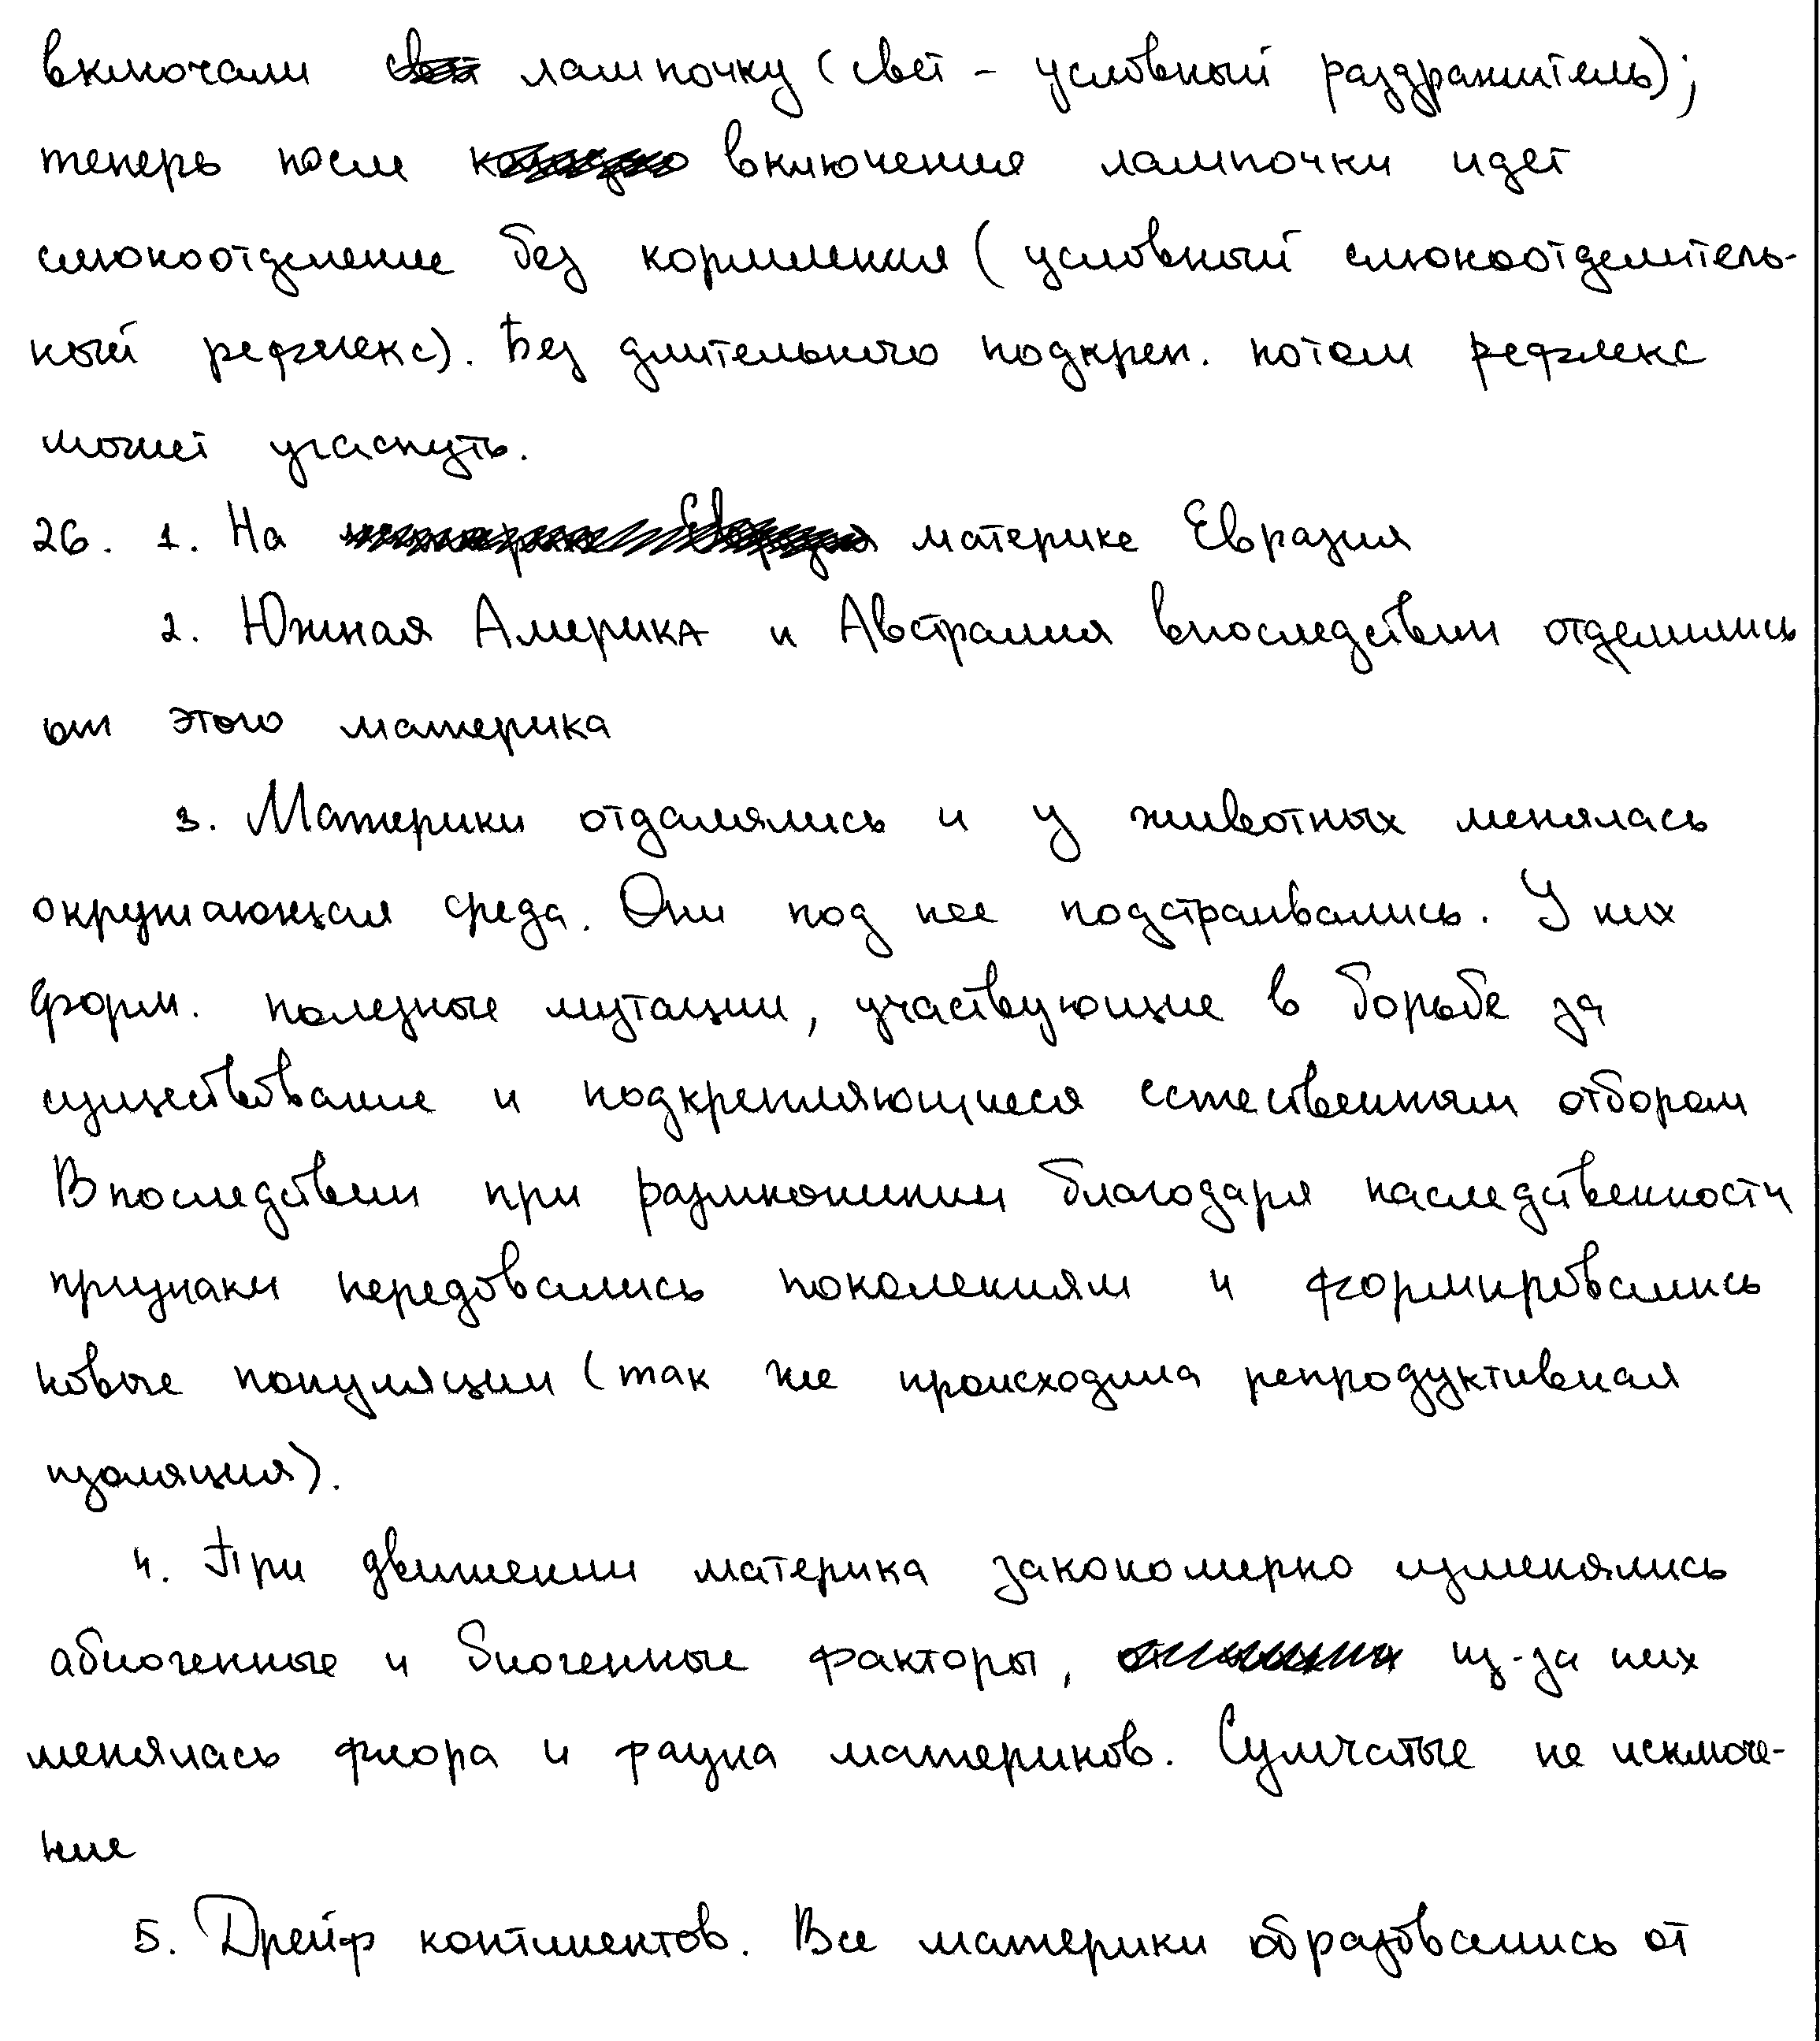 включали лампочку (свет - условный раздражитель);
теперь после включения лампочки идет
слюноотделение без кормления (условный слюноотделитель-
ный рефлекс). Без длительного подкреп. потом рефлекс
может угаснуть.
26. 1. На материке Евразия
2. Южная Америка и Австралия впоследствии отделились
от этого материка
3. Материки отдалялись и у животных менялась
окружающая среда. Они под нее подстраивались. У них
форм. полезные мутации, участвующие в борьбе за
существование и подкрепляющиеся естественным отбором
Впоследствии при размножении благодаря наследственности
признаки передовались поколениям и формировались
новые популяции (так же происходила репродуктивная
изоляция).
4. При движении материка закономерно изменялись
абиогенные и биогенные факторы, из-за них
менялась флора и фауна материков. Сумчатые не исключе-
ние
5. Дрейф континентов. Все материки образовались от